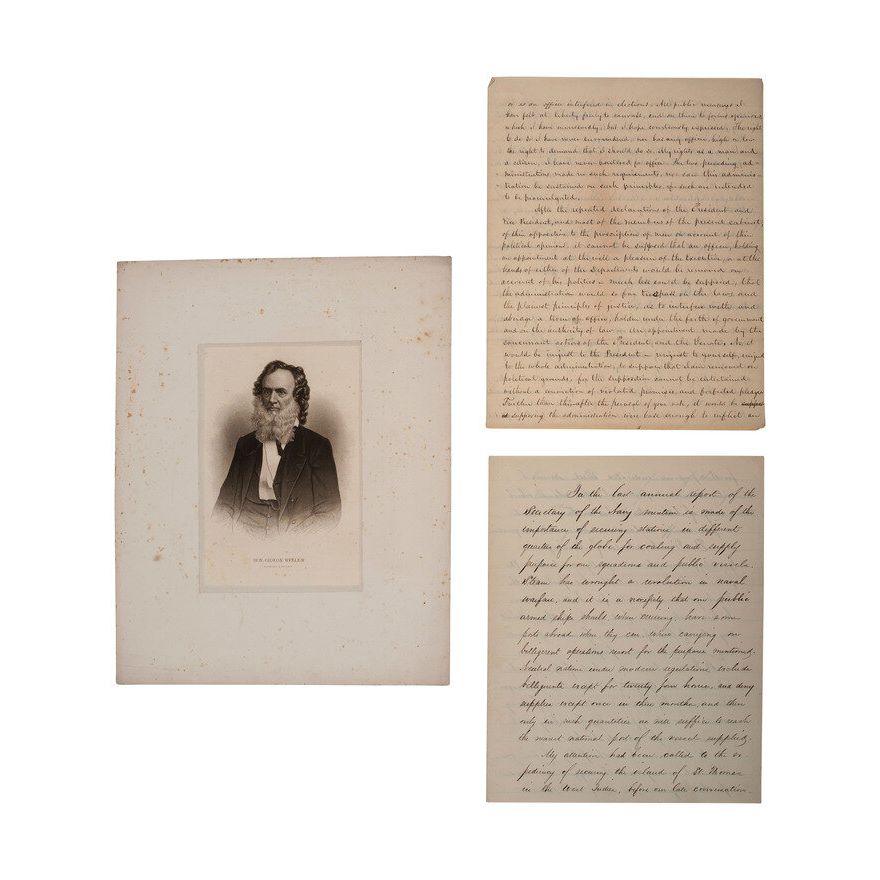 HON. GIDEON WELLES
or as an officer interfered in elections. All public measures I
have felt at liberty freely to canvass, and on them to form opinions
which I have unreservedly, but I hope courteously expressed. The right
to do so I have never surrendered, nor has any officer, high or low
the right to demand that I should do so. My rights as a man and
a citizen, I have never bartered for office. The two preceding ad-
ministrations made no such requirements, nor can this adminis-
tration be sustained on such principles if such are intended
to be promulgated.
After the repeated declarations of the President and
Vice President, and most of the members of the present cabinet,
of their opposition to the proscription of men on account of their
political opinions, it cannot be supposed that an officer, holding
an appointment at the will & pleasure of the Executive, or at the
hands of either of the Departments would be removed on
account of his politics — much less could it be supposed, that
the administration would so far trespass on the laws and
the plainest principles of justice, as to interfere with and
abridge a term of office, holden under the faith of government
and on the authority of law — an appointment made by the
concurrent action of the President and the Senate. No, it
would be unjust to the President — unjust to yourself, unjust
to the whole administration, to suppose that I am removed on
political grounds, for the supposition cannot be entertained
without a of violated promises, and forfeited pledges
Further than this after the perusal of your note, it would be
supposing the administration were base enough to inflict an
In the last annual report of the
Secretary of the Navy mention is made of the
importance of securing stations in different
quarters of the globe for coaling and supply
purposes for our squadrons and public vessels.
Steam has wrought a revolution in naval
warfare, and it is a necessity that our public
armed ships should, when cruising, have some
ports abroad when they can, were carrying on
belligerent operations resort for the purpose mentioned.
Neutral nations under modern regulations, exclude
belligerents except for twenty four hours, and deny
supplies except once in three months, and then
only in such quantities as will suffice to reach
the nearest national port of the vessel supplied.
My attention had been called to the ex
pediency of securing the island of St. Thomas
in the West Indies, before our late conversation